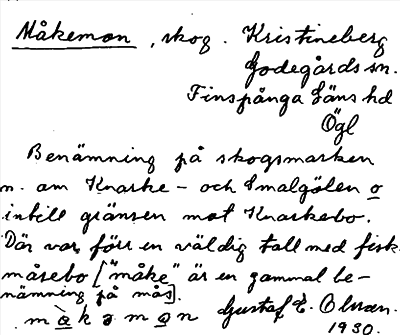 Måkemon, skog. Kristineberg
Godegårds sn.
Finspånga Läns hd
Ögl
Benämning på skogsmarken
n. om Knarke- och Smalgölen o
intill gränsen mot Knarkebo.
Där var förr en väldig tall med fisk-
måsebo ["måke" är en gammal be-
nämning på mås].
m à k ə m o n Gustaf E. Olsson.
1930.